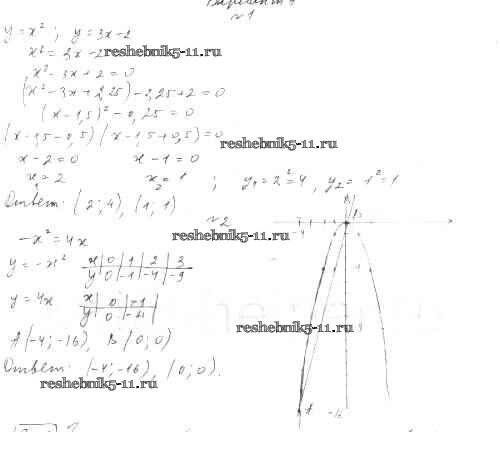 Вариант 1
№1
y = x²; y = 3x - 2
x² = 3x - 2
reshebnik5-11.ru
x² - 3x + 2 = 0
(x² - 3x + 2,25) - 2,25 + 2 = 0
(x - 1,5)² - 0,25 = 0
(x - 1,5 - 0,5)(x - 1,5 + 0,5) = 0
reshebnik5-11.ru
x - 2 = 0 x - 1 = 0
x₁ = 2 x₂ = 1 ; y₁ = 2² = 4, y₂ = 1² = 1
Ответ: (2; 4), (1; 1)
№2
-x² = 4x
reshebnik5-11.ru
y = -x² x 0 1 2 3
y 0 -1 -4 -9
y = 4x x 0 -1
y 0 -4
A(-4; -16), B(0; 0)
reshebnik5-11.ru
Ответ: (-4; -16), (0; 0).
reshebnik5-11.ru
B
-4
A
-16